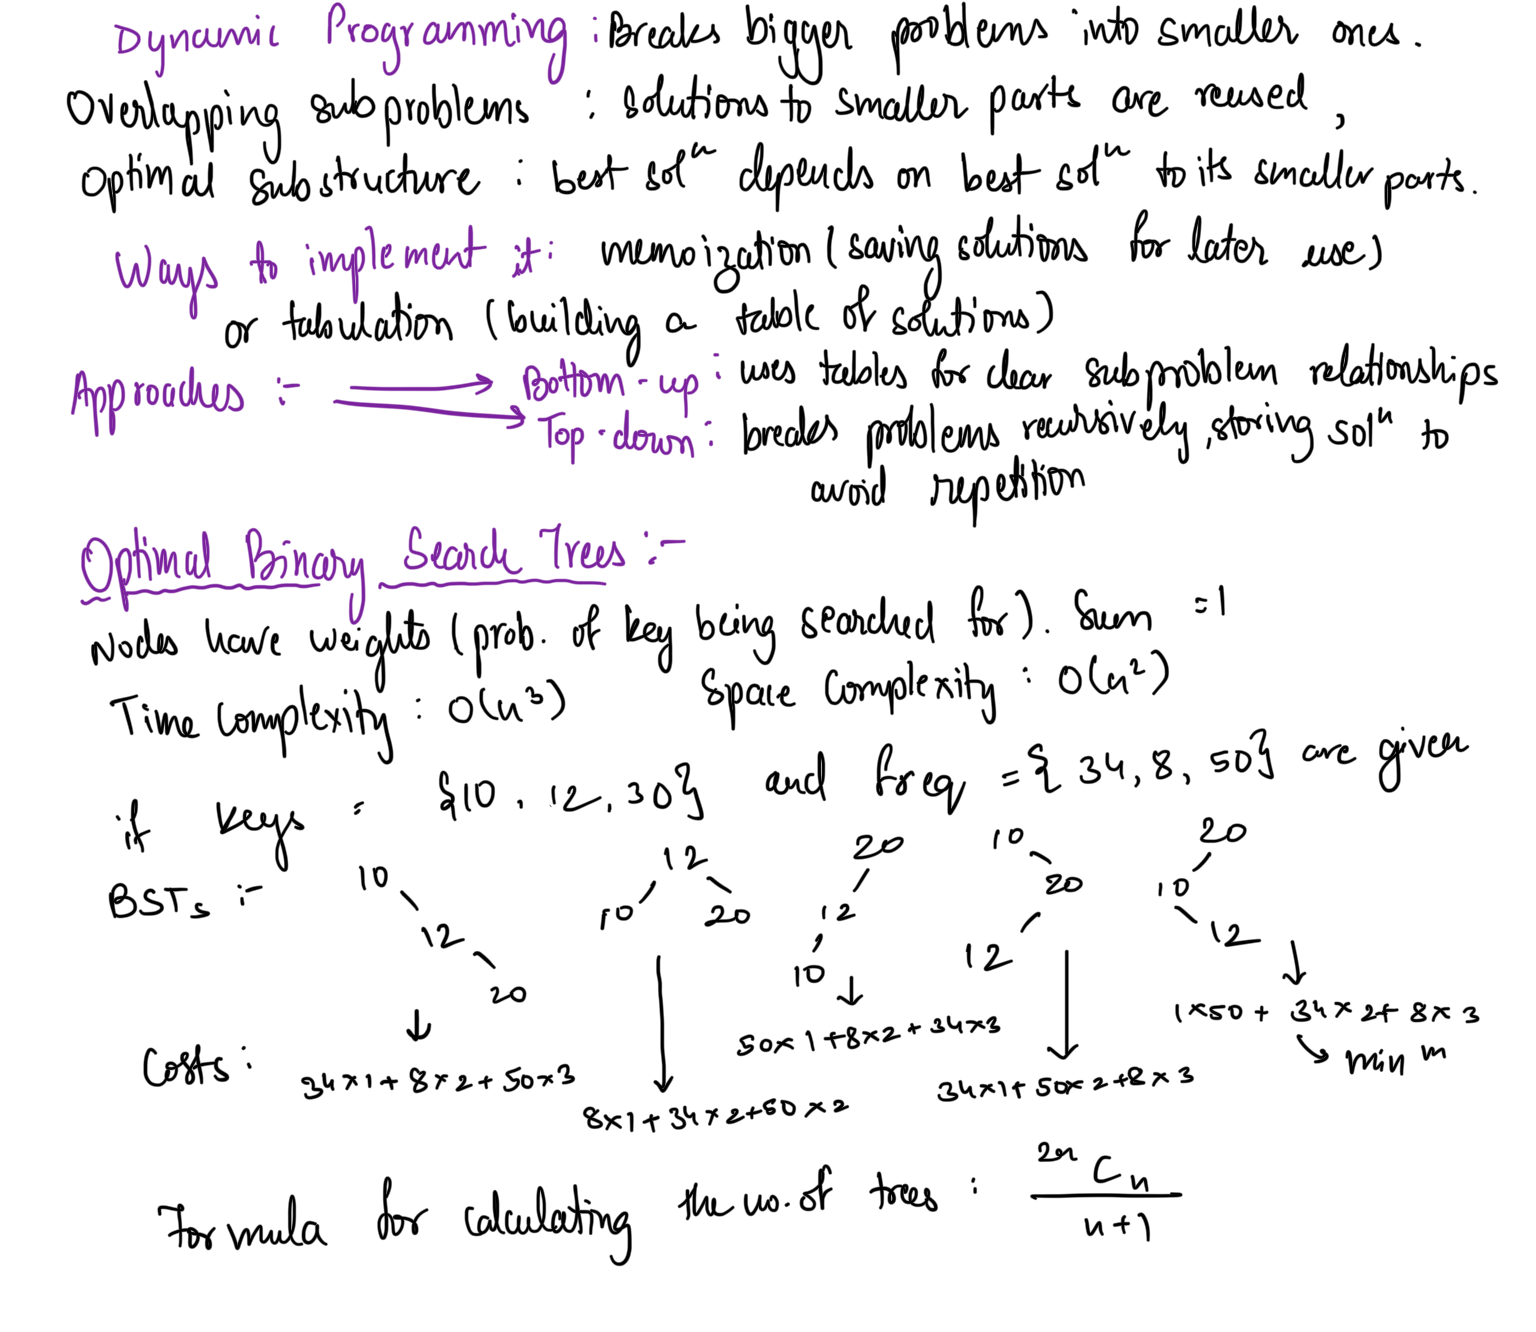 Dynamic Programming : Breaks bigger problems into smaller ones.
Overlapping subproblems : solutions to smaller parts are reused,
Optimal Substructure : best solⁿ depends on best solⁿ to its smaller parts.
Ways to implement it: memoization (saving solutions for later use)
or tabulation (building a table of solutions)
Approaches :- Bottom-up : uses tables for clear subproblem relationships
Top-down : breaks problems recursively, storing solⁿ to
avoid repetition
Optimal Binary Search Trees :-
Nodes have weights (prob. of key being searched for). Sum =1
Time Complexity : O(n³) Space Complexity : O(n²)
if keys = {10, 12, 30} and freq = {34, 8, 50} are given
BSTs :-
10 12 20
12 10 20
20 12 10
10 20 12
20 10 12
Costs :
34×1+8×2+50×3
8×1+34×2+50×2
50×1+8×2+34×3
34×1+50×2+8×3
1×50+34×2+8×3
minᵐ
Formula for calculating the no. of trees : ²ⁿCₙ
n+1